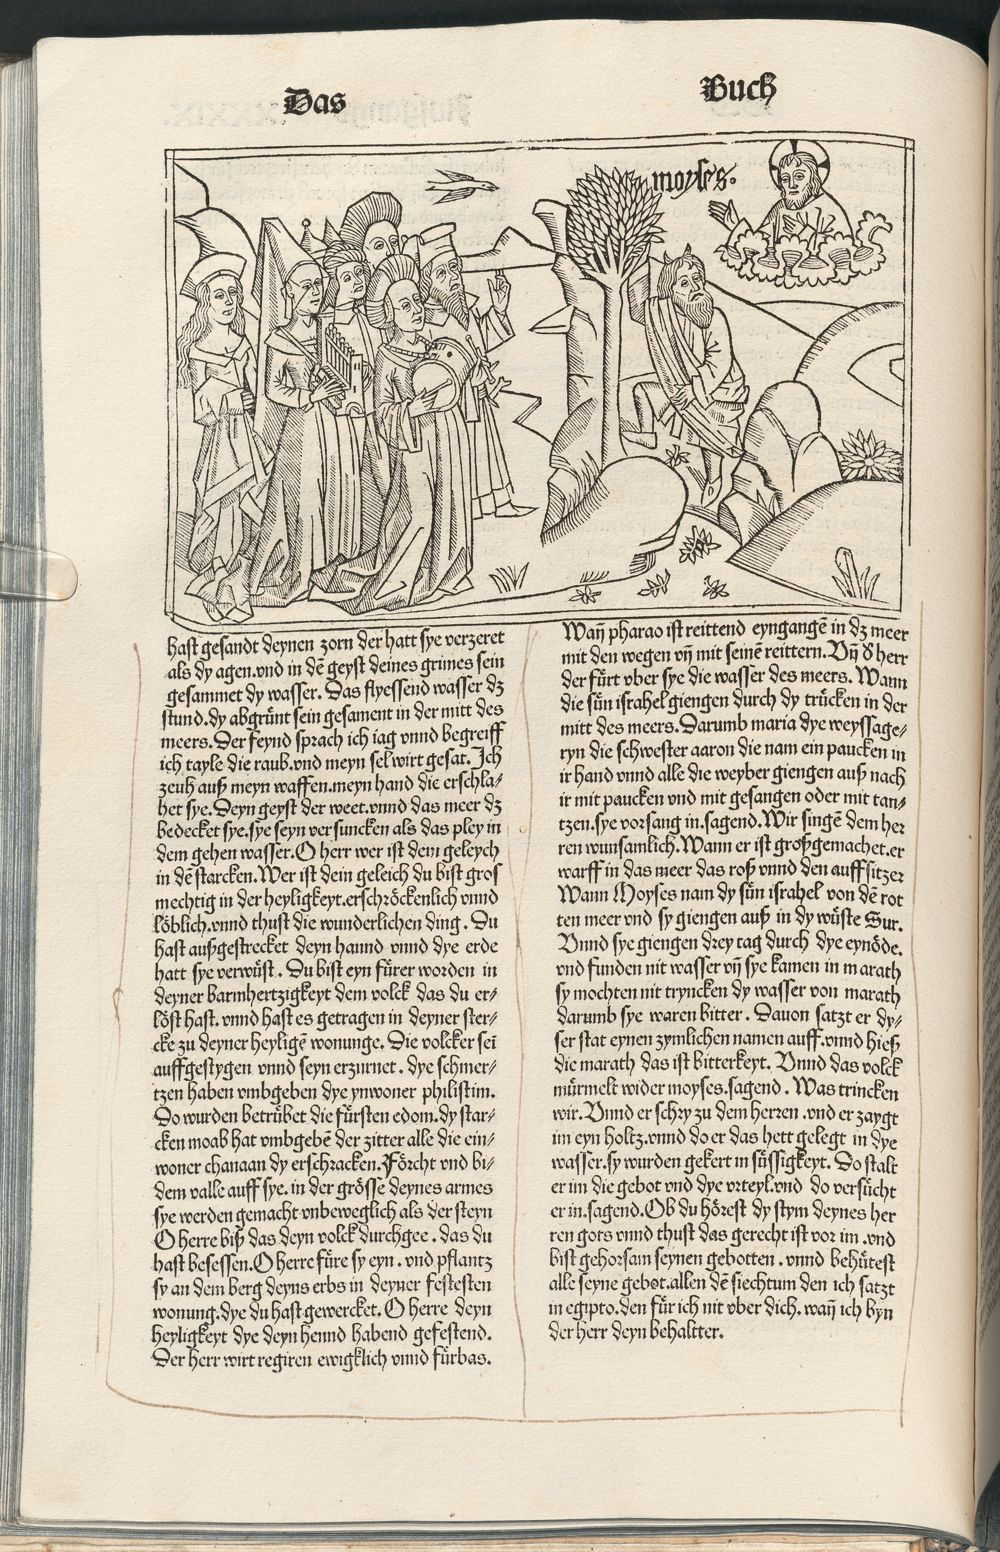 Das Buch
moyses.
hast gesandt deynen zorn der hatt sye verzeret
als dy agen.vnd in dē geyst deines grimes sein
gesammet dy wasser. Das flyessend wasser dz
stund.dy abgrünt sein gesament in der mitt des
meers.Der feynd sprach ich iag vnnd begreiff
ich tayle die raub.vnd meyn sel wirt gesat. Ich
zeuh auß meyn waffen.meyn hand die erschla⸗
het sye. Deyn geyst der weet.vnnd das meer dz
bedecket sye.sye seyn versuncken als das pley in
dem gehen wasser.O herr wer ist dem geleych
in dē starcken.Wer ist dein geleich du bist gros
mechtig in der heyligkeyt.erschröckenlich vnnd
löblich.vnnd thust die wunderlichen ding. Du
hast außgestrecket deyn hannd vnnd dye erde
hatt sye verwüst. Du bist eyn fürer worden in
deyner barmhertzigkeyt dem volck das du er⸗
löst hast. vnnd hast es getragen in deyner ster⸗
cke zu deyner heyligē wonunge. Die volcker sei
auffgestygen vnnd seyn erzurnet. dye schmer⸗
tzen haben vmbgeben dye ynwoner philistim.
Do wurden betrübet die fürsten edom.dy star⸗
cken moab hat vmbgebē der zitter alle die ein⸗
woner chanaan dy erschracken.Förcht vnd bi⸗
dem valle auff sye.in der grösse deynes armes
sye werden gemacht vnbeweglich als der steyn
O herre biß das deyn volck durchgee. das du
hast besessen.O herre füre sy eyn. vnd pflantz
sy an dem berg deyns erbs in deyner festesten
wonung.dye du hast gewercket. O herre deyn
heyligkeyt dye deyn hennd habend gefestend.
Der herr wirt regiren ewigklich vnnd fürbas.
Wañ pharao ist reittend eyngangē in dz meer
mit den wegen vñ mit seinē reittern. Vñ d herr
der fürt vber sye die wasser des meers. Wann
die sün israhel giengen durch dy trücken in der
mitt des meers.Darumb maria dye weyssage⸗
ryn die schwester aaron die nam ein paucken in
ir hand vnnd alle die weyber giengen auß nach
ir mit paucken vnd mit gesangen oder mit tan⸗
tzen.sye vorsang in.sagend.Wir singē dem her
ren wunsamlich.Wann er ist großgemachet.er
warff in das meer das roß vnnd den auffsitzer
Wann Moyses nam dy sün israhel von dē rot
ten meer vnd sy giengen auß in dy wüste Sur.
Vnnd sye giengen drey tag durch dye eynöde.
vnd funden nit wasser vñ sye kamen in marath
sy mochten nit tryncken dy wasser von marath
darumb sye waren bitter. Dauon satzt er dy⸗
ser stat eynen zymlichen namen auff.vnnd hieß
die marath das ist bitterkeyt. Vnnd das volck
mürmelt wider moyses.sagend. Was trincken
wir.Vnnd er schry zu dem herren.vnd er zaygt
im eyn holtz.vnnd do er das hett gelegt in dye
wasser.sy wurden gekert in süssigkeyt. Do stalt
er im die gebot vnd dye vrteyl.vnd do versücht
er in.sagend.Ob du hörest dy stym deynes her
ren gots vnnd thust das gerecht ist vor im.vnd
bist gehorsam seynen gebotten. vnnd behütest
alle seyne gebot.allen dē siechtum den ich satzt
in egipto.den für ich nit vber dich.wañ ich byn
der herr deyn behaltter.